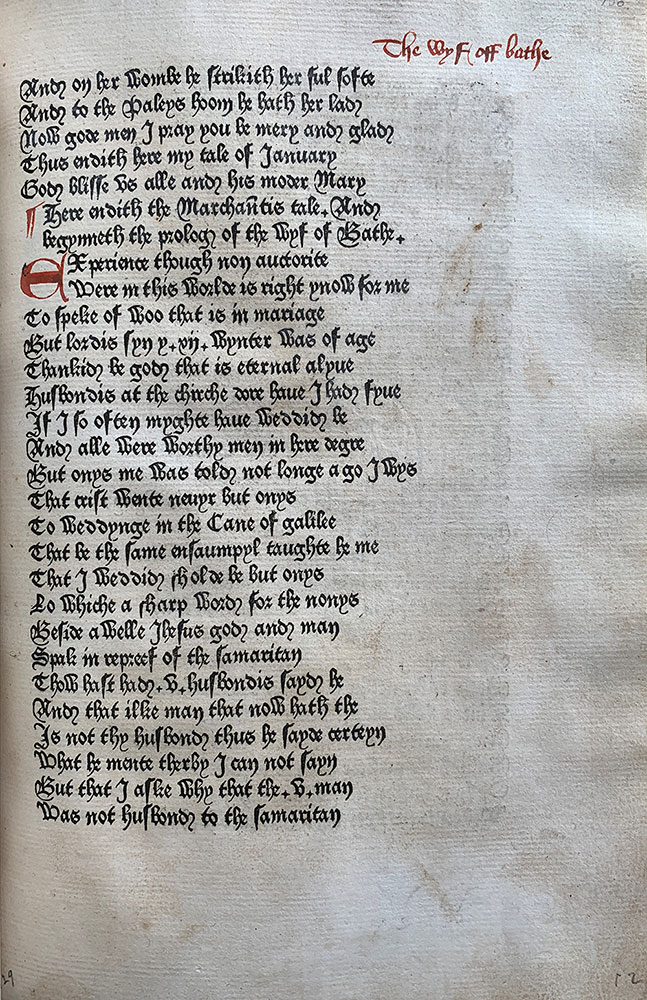 The wyf off bathe
And on her wombe he strikith her ful softe
And to the Paleys hoom he hath her lad
Now gode men I pray you be mery and glad
Thus endith here my tale of January
God blisse vs alle and his moder Mary
¶ Here endith the Marchañtis tale. And
begynneth the prolog of the wyf of Bathe.
EXperience though non auctorite
Were in this worlde is right ynow for me
To speke of woo that is in mariage
But lordis syn y. xij. wynter was of age
Thankid be god that is eternal alyue
Husbondis at the chirche dore haue I had fyue
If I so often myghte haue weddid be
And alle were worthy men in here degre
But onys me was told not longe a go I wys
That crist wente neuyr but onys
To weddynge in the Cane of galilee
That be the same ensaumpyl taughte he me
That I weddid sholde be but onys
Lo whiche a sharp word for the nonys
Beside a welle Ihesus god and man
Spak in repreef of the samaritan
Thow hast had. v. husbondis sayd he
And that ilke man that now hath the
Is not thy husbond thus he sayde certeyn
What he mente therby I can not sayn
But that I aske why that the. v. man
Was not husbond to the samaritan